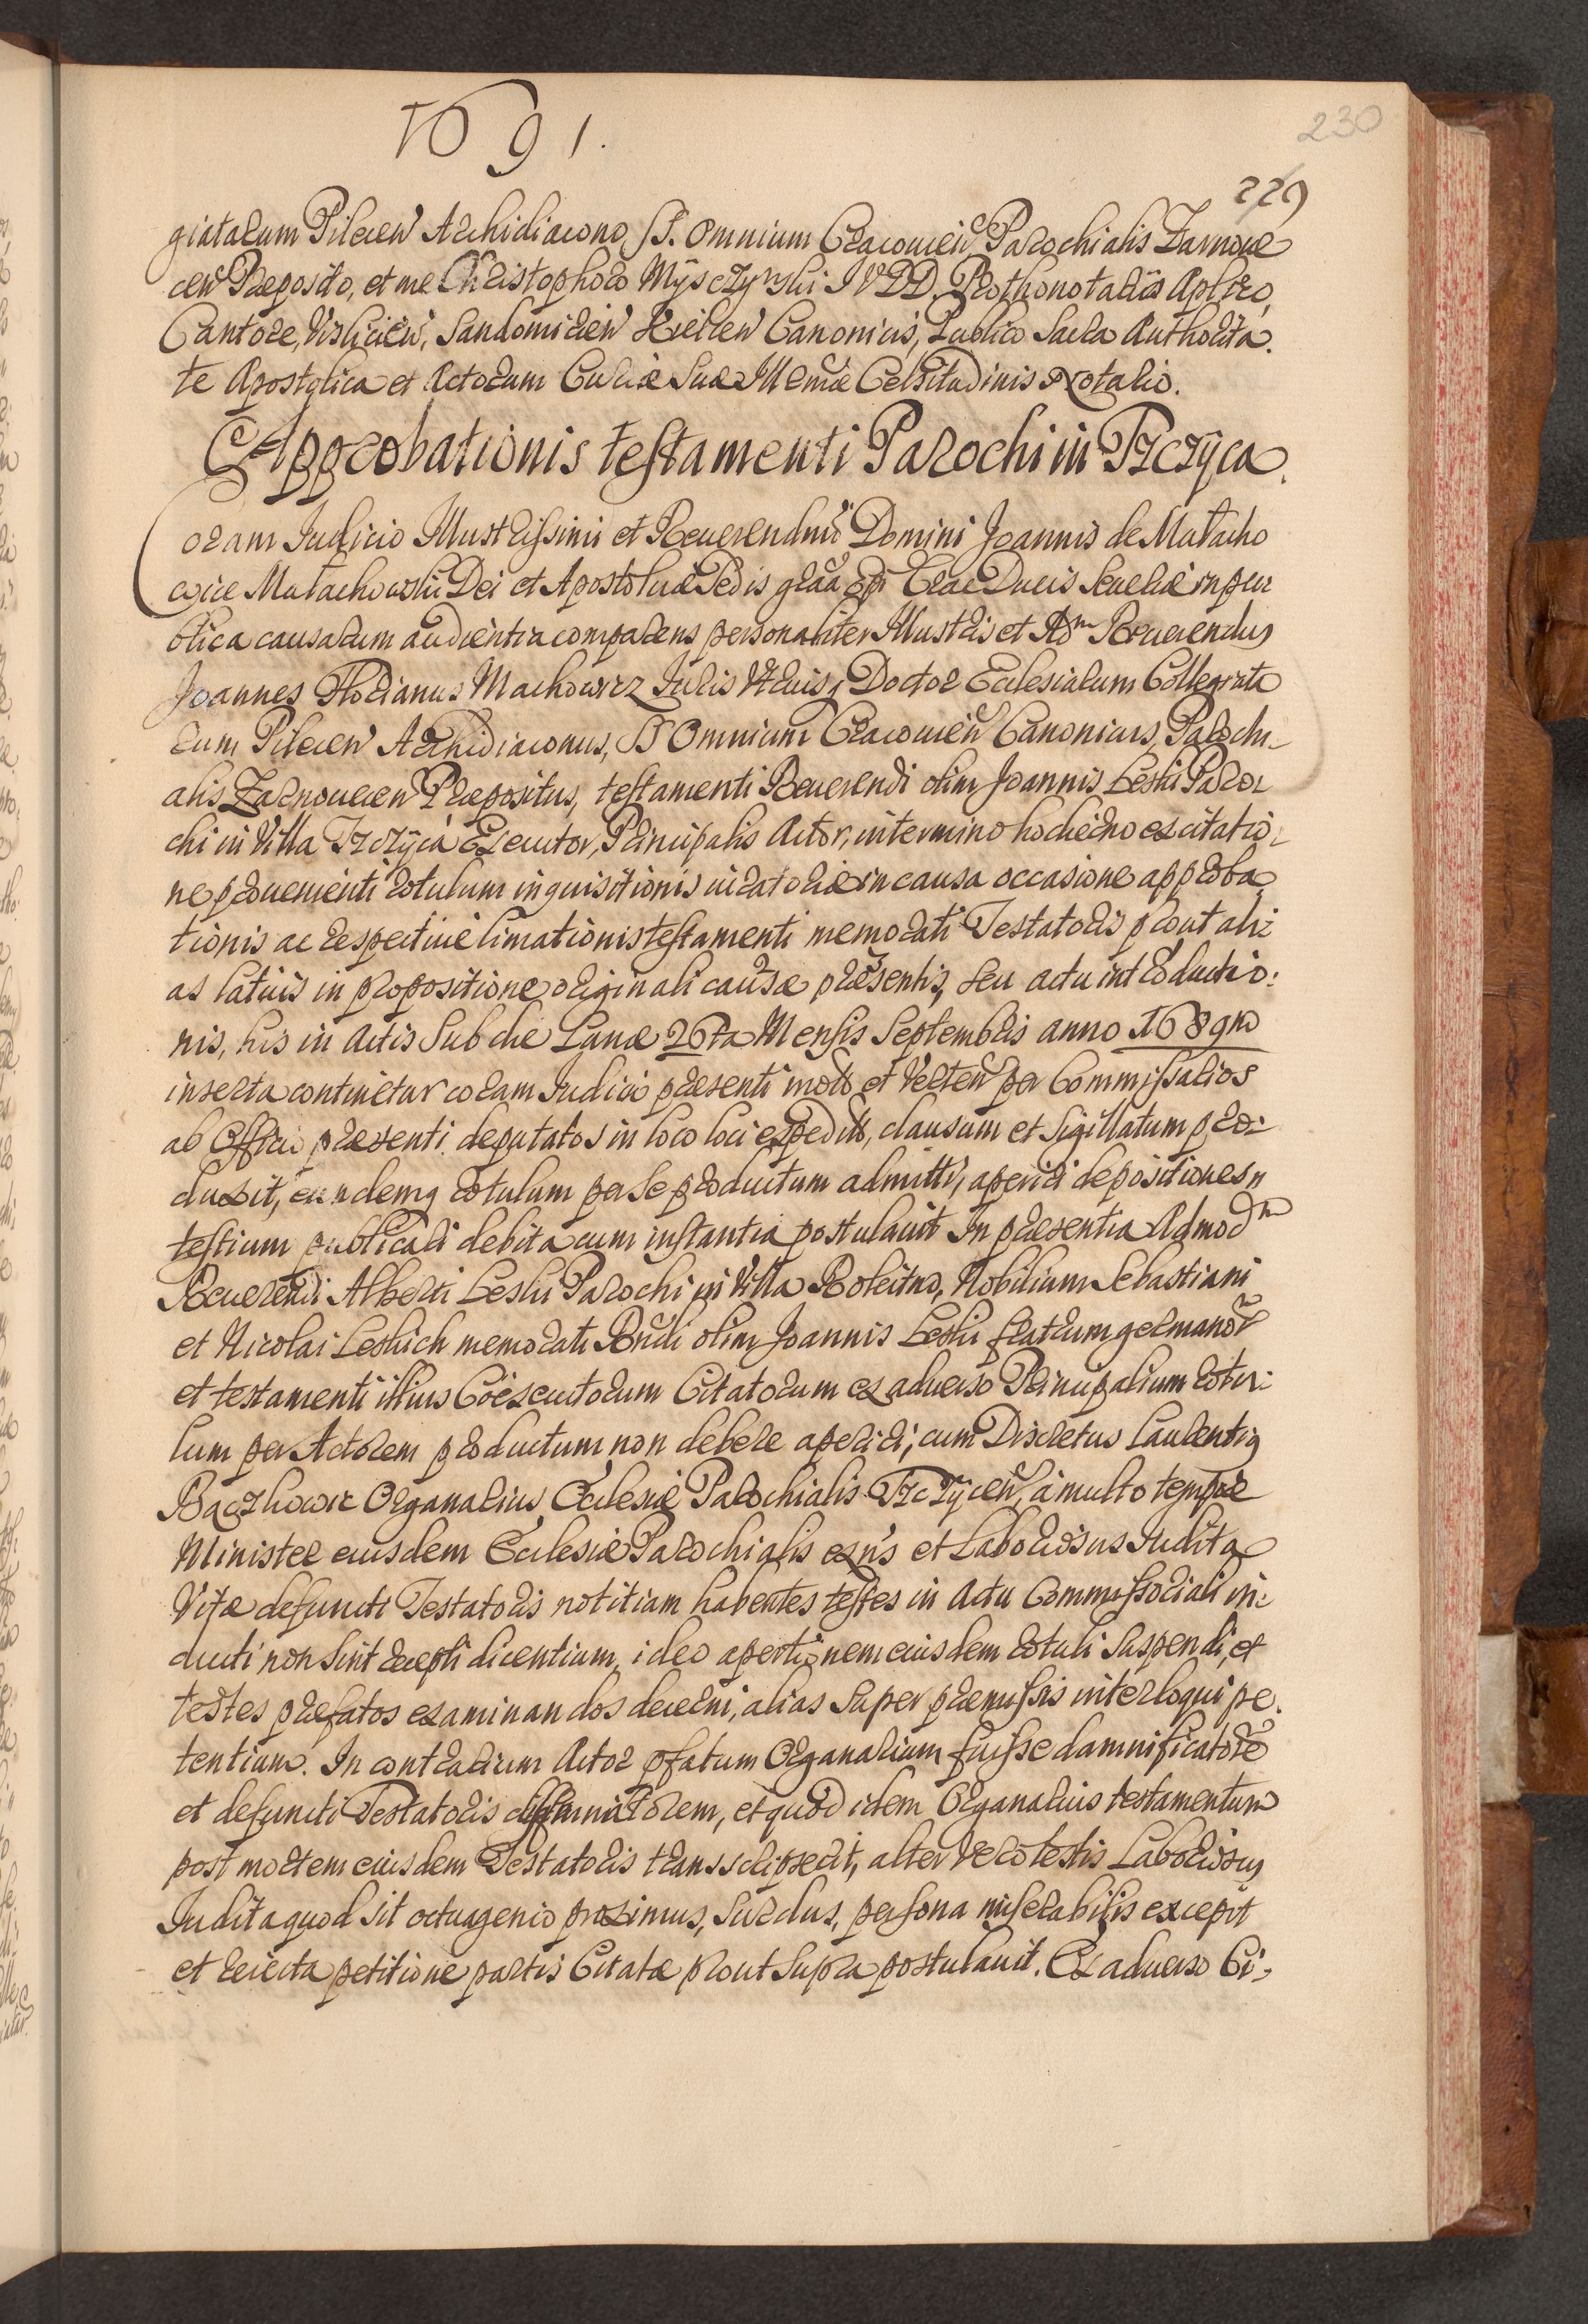 1691.
230
229
giatarum Pilecen Archidiacono, SS. Omnium Cracovien Parochialis Zarnove
cen Præposito, et me Christophoro Mysczynski IVDD. Prothonotariis Aplico,
Cantore, Vislicien, Sandomirien Kielcen Canonicis, Publico Sacra Authorita.
te Apostolica et Actorum Curiæ Suæ Illemæ Celsitudinis Notario.
Approbationis testamenti Parochi in Trzyca.
Coram Iudicio Illustrissimi et Reverendmi Domini Joannis de Małacho
wice Małachowski Dei et Apostolicæ Sedis graa Epi Crac Ducis Severiæ in pu
blica causarum audientia comparens personaliter Illustris et Adm Reverendus
Joannes Florianus Machowicz Iuris Utriusq Doctor Ecclesiarum Collegiata
rum Pilecen Archidiaconus, SS Omnium Cracovien Canonicus, Parochi-
alis Zarnovecen Præpositus, testamenti Reverendi olim Joannis Leski Paro-
chi in Villa Trzyca Executor, Principalis Actor, in termino hodierno ex citatio-
ne provenienti rotulum inquisitionis in causa occasione approba
tionis ac respective limationis testamenti memorati Testatoris prout ali-
as latius in propositione originali causæ præsentis, seu actu introductio-
nis, his in Actis Sub die Lunæ 26ta Mensis Septembris anno 1689no
inserta continetur coram Iudicio præsenti moto et verten per Commissarios
ab Officio præsenti deputatos in loco loci expedito, clausum et Sigillatum pro-
duxit, eundemq rotulum per se productum admitti, aperiri depositiones
testium publicari debita cum instantia postulavit In præsentia Admodm
Reverendi Alberti Leski Parochi in Villa Nobilium Sebastiani
et Nicolai Leskich memorati Rndi olim Joannis Leski fratrum germanor
et testamenti illius Coexecutorum Citatorum ex adverso Principalium rotu-
lum per Actorem productum non debere aperiri, cum Discretus Laurentig
Organarius Ecclesiæ Parochialis Trzycen, a multo tempore
Minister eiusdem Ecclesiæ Parochialis exns et Laboriosus Iudita
Vitæ defuncti Testatoris notitiam habentes testes in Actu Commissoriali in-
ducti non sint recepti dicentium, ideo apertionem eiusdem rotuli Suspendi, et
testes præfatos examinandos decerni, alias super præmissis interloqui pe-
tentium. In contrarium Actor pfatum Organarium fuisse damnificatore
et defuncti Testatoris diffamatorem, et quod idem Organarius testamentum
post mortem eiusdem Testatoris transscripserit, alter vero testis Laboriosus
Iudita quod sit octuagenio proximus, Surdus, persona miserabilis excepit
et reiecta petitione partis Citatæ prout supra postulavit. Ex adverso Ci-